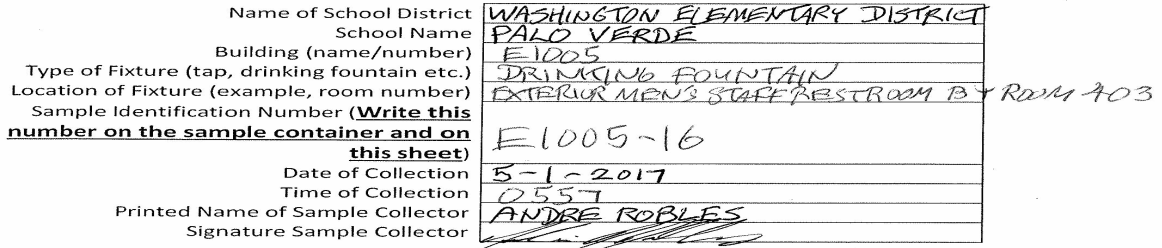 Name of School District WASHINGTON ELEMENTARY DISTRICT
School Name PALO VERDE
Building (name/number) E1005
Type of Fixture (tap, drinking fountain etc.) DRINKING FOUNTAIN
Location of Fixture (example, room number) EXTERIOR MEN'S STAFF RESTROOM BY ROOM 403
Sample Identification Number (Write this
number on the sample container and on
this sheet) E1005-16
Date of Collection 5-1-2017
Time of Collection 0557
Printed Name of Sample Collector ANDRE ROBLES
Signature Sample Collector